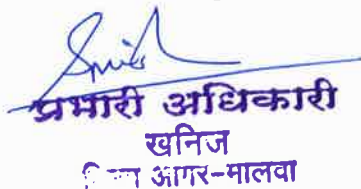 प्रभारी अधिकारी
खनिज
आगर-मालवा